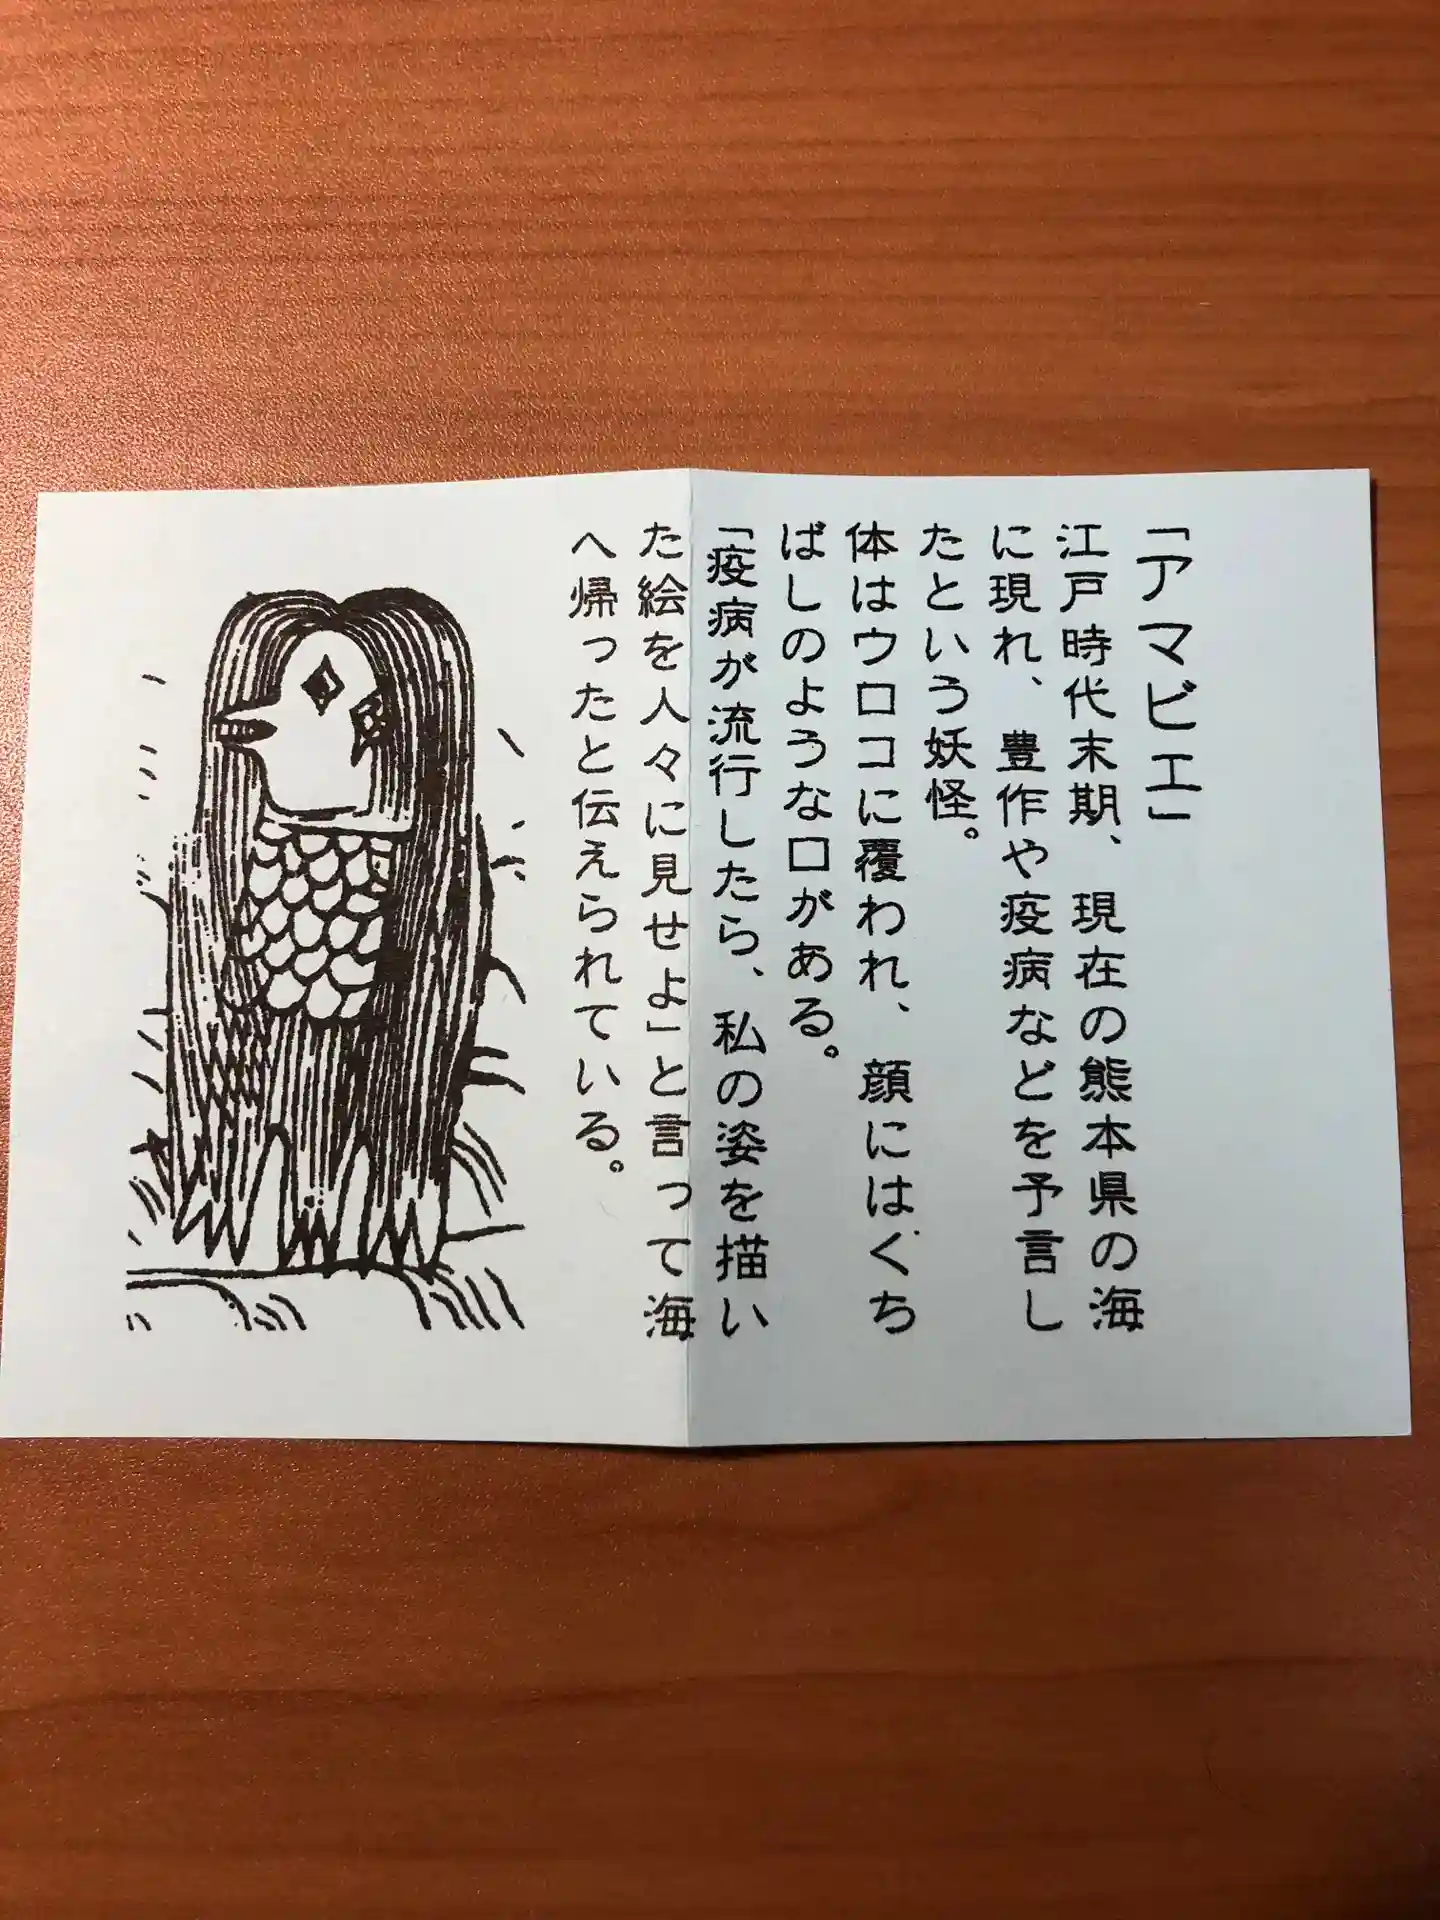 「アマビエ」
江戸時代末期、現在の熊本県の海
に現れ、豊作や疫病などを予言し
たという妖怪。
体はウロコに覆われ、顔にはくち
ばしのような口がある。
「疫病が流行したら、私の姿を描い
た絵を人々に見せよ」と言って海
へ帰ったと伝えられている。